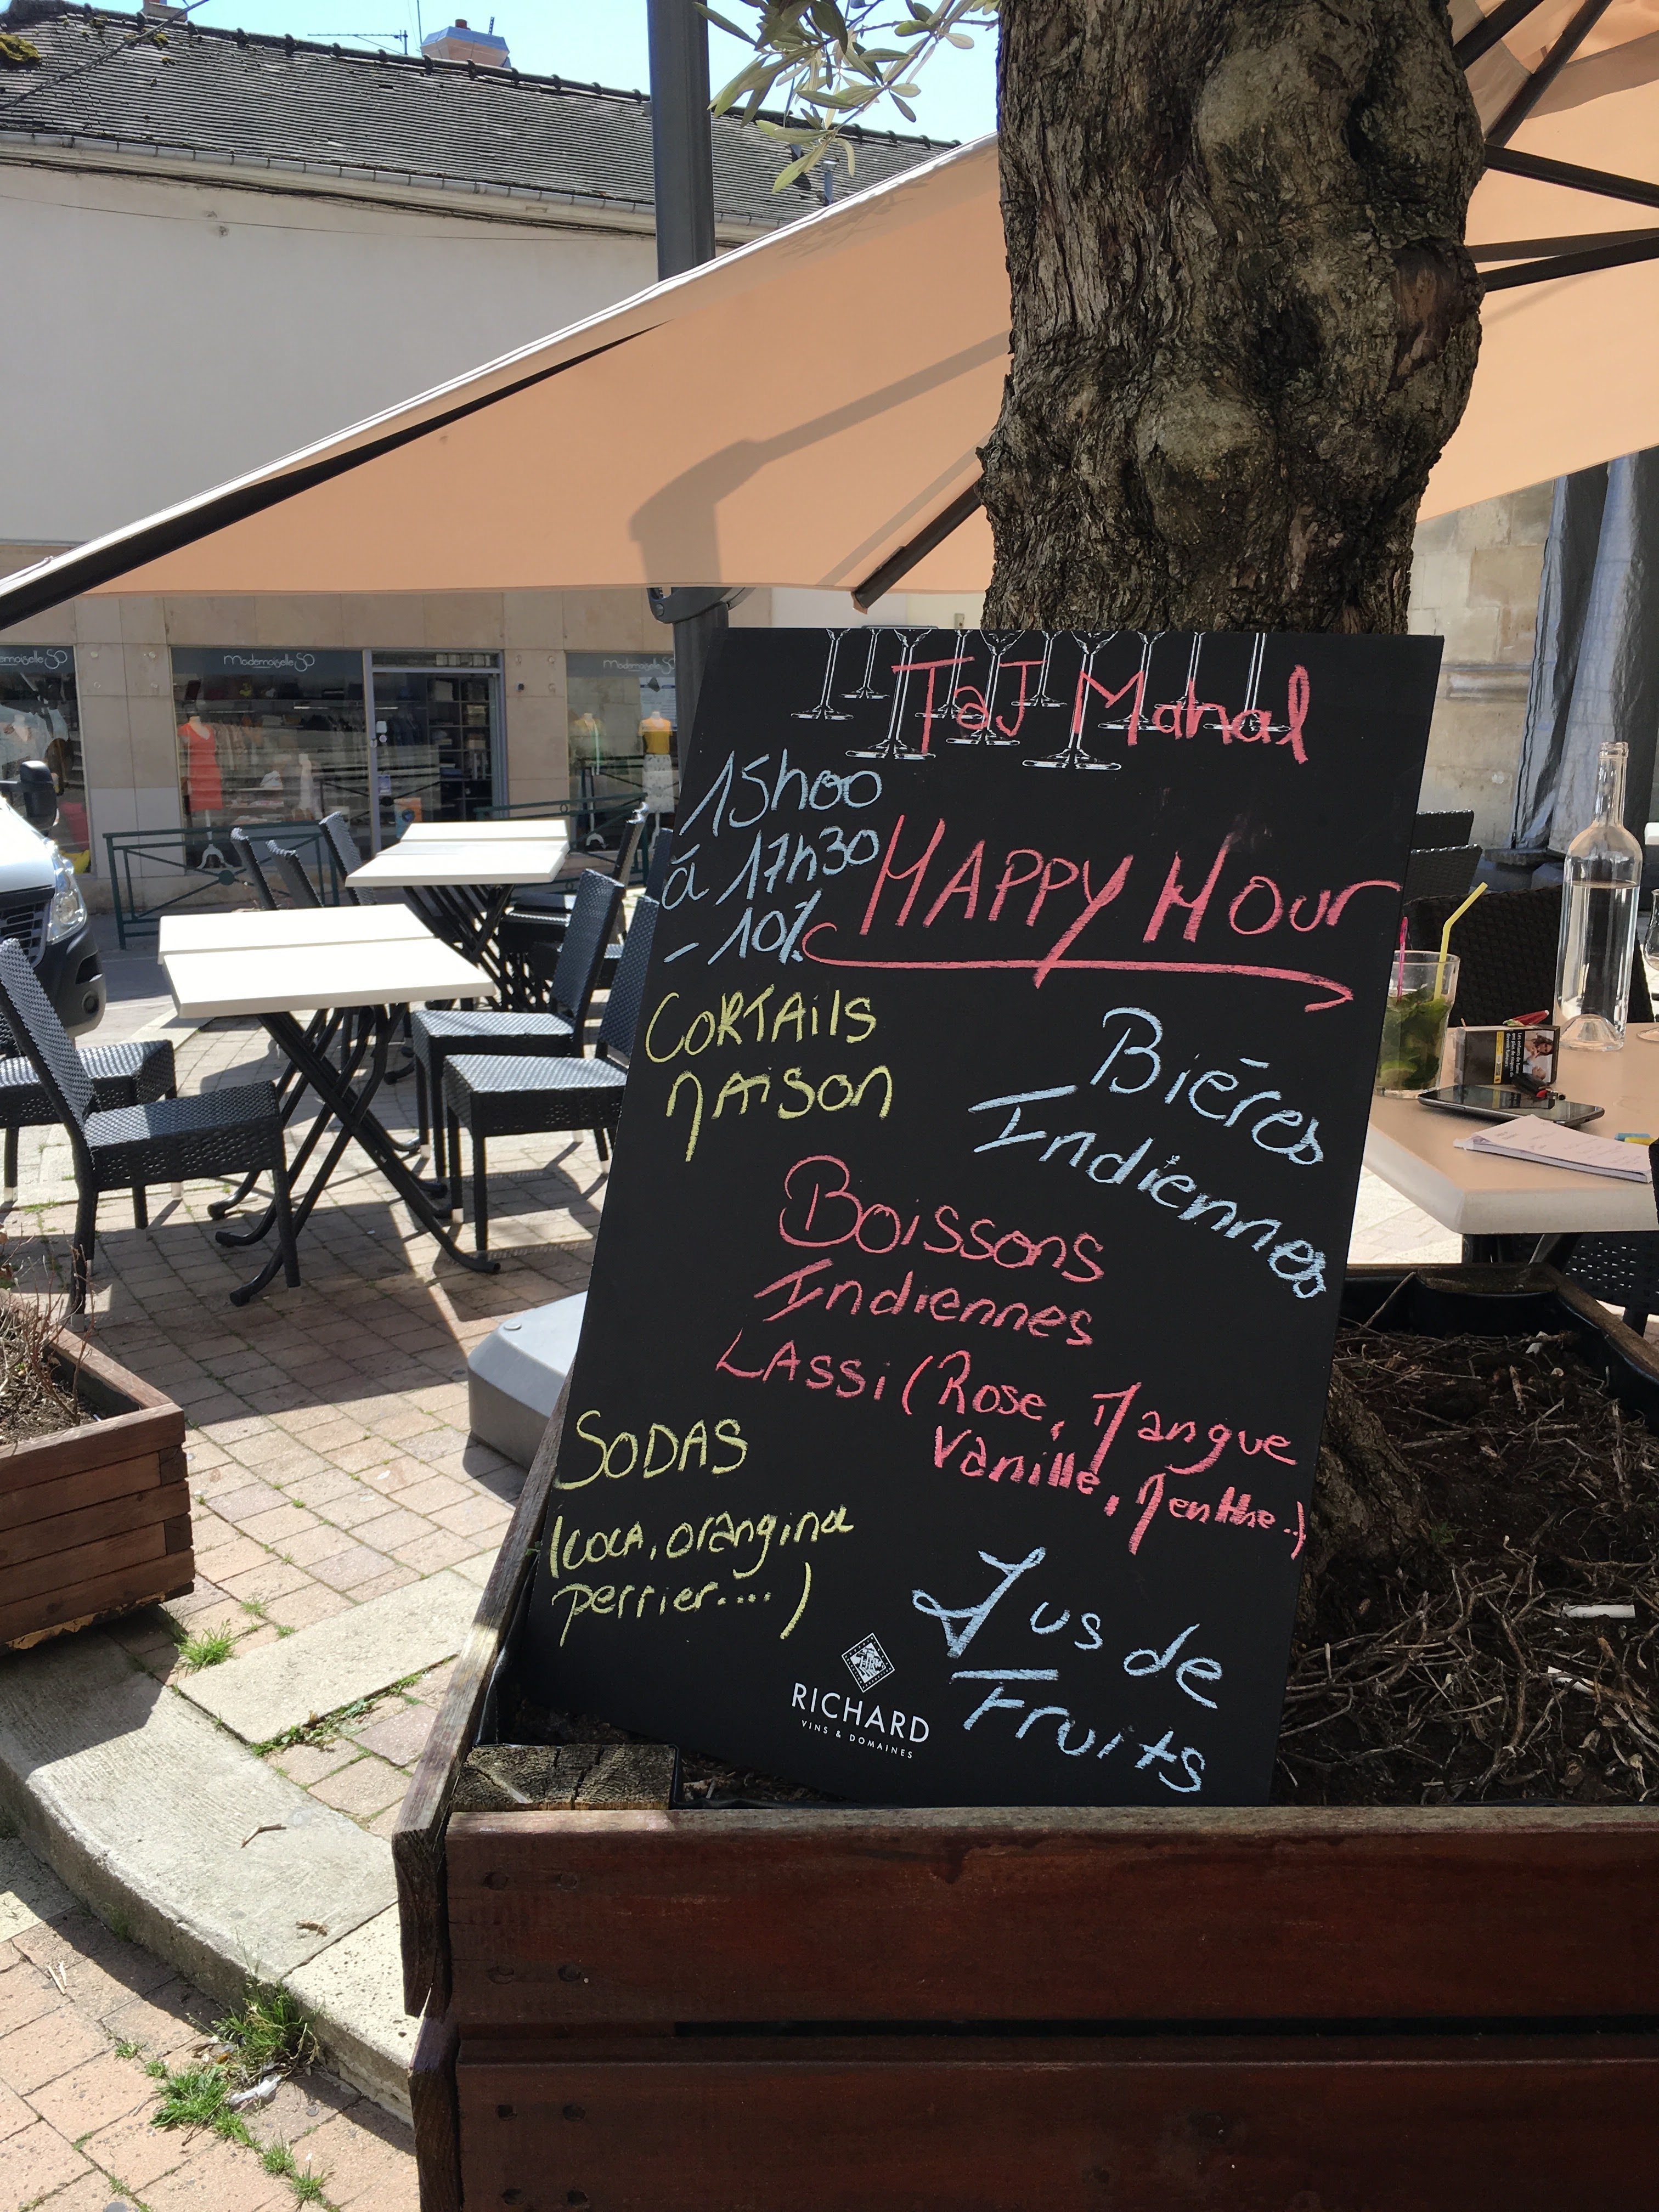 Mademoiselle SO
Mademoiselle SO
TaJ Mahal
15h00
à 17h30
- 10%
HAPPY HOUr
CORTAils
MAISON
Bières
Indiennes
Boissons
Indiennes
LASSi (Rose, Mangue
Vanille, Menthe..)
SODAS
(COCA, Orangina
perrier....)
Jus de
Fruits
RICHARD
VINS & DOMAINES